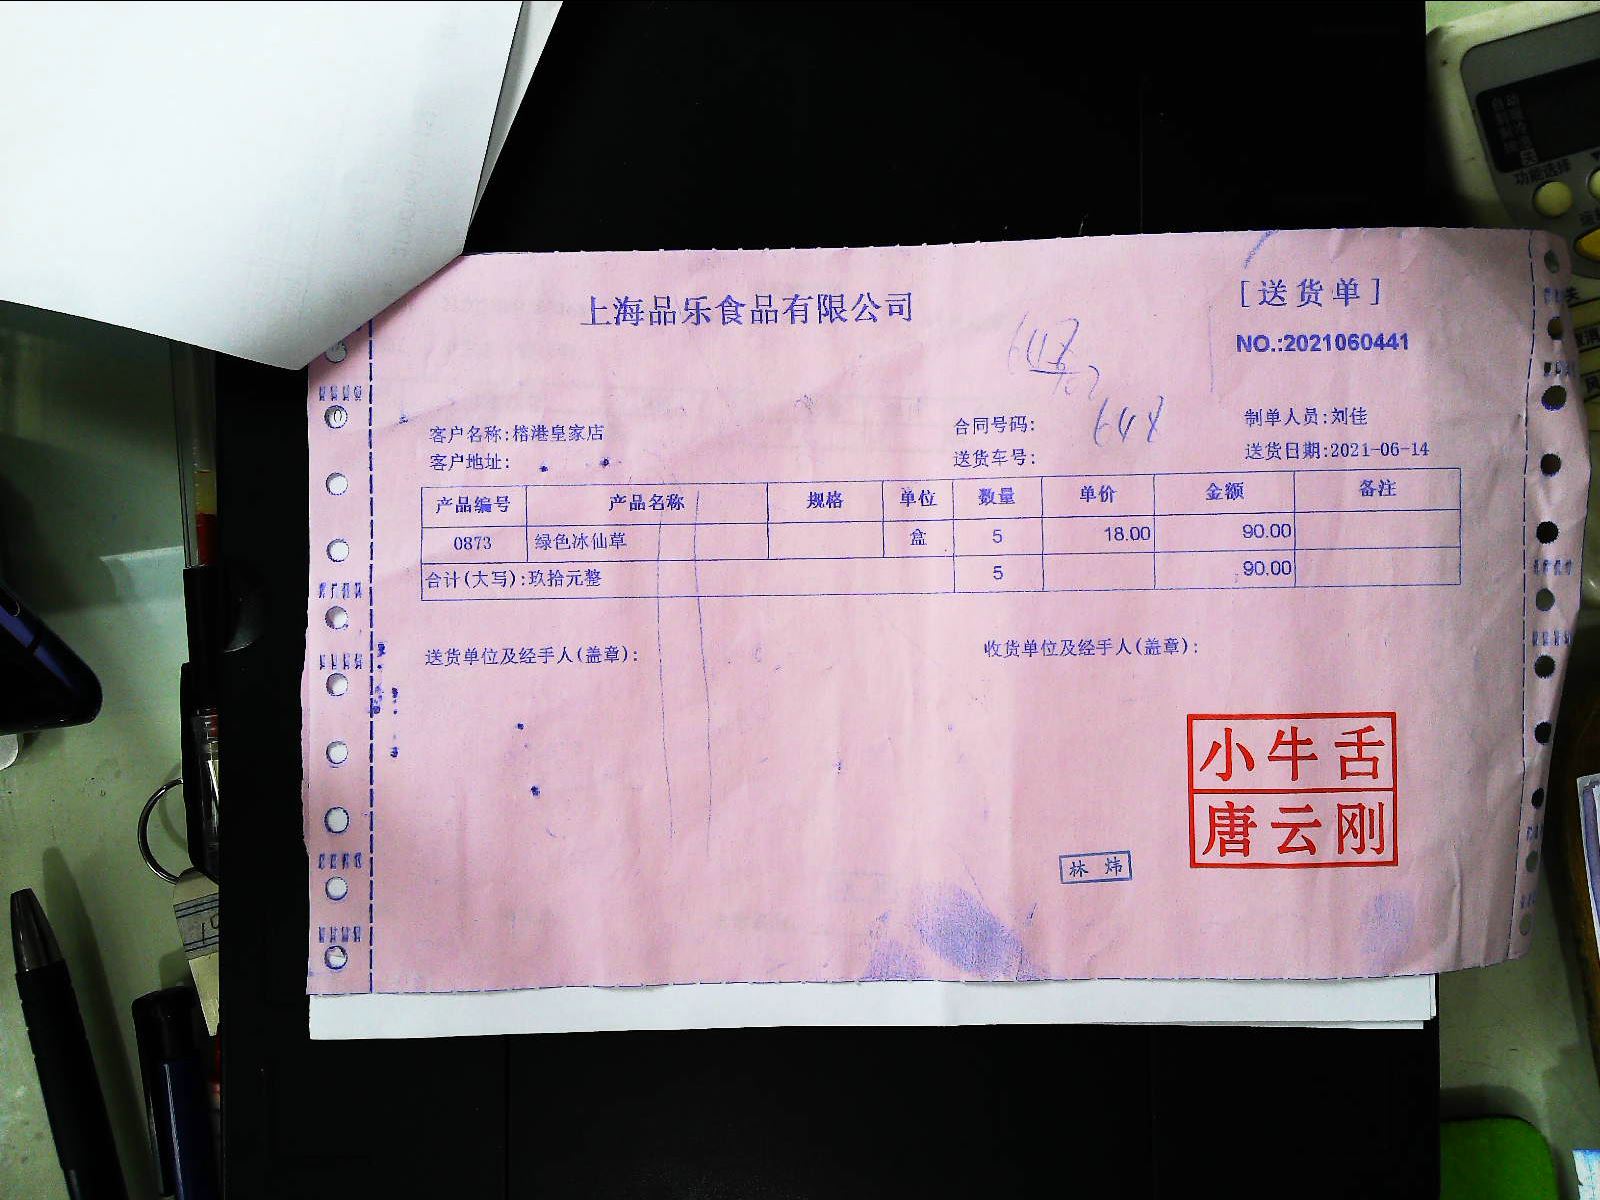 上海品乐食品有限公司
[送货单]
NO.:2021060441
客户名称:榕港皇家店
合同号码:
制单人员:刘佳
客户地址:
送货车号:
648
送货日期:2021-06-14
产品编号 产品名称 规格 单位 数量 单价 金额 备注
0873 绿色冰仙草 盒 5 18.00 90.00
合计(大写):玖拾元整 5 90.00
送货单位及经手人(盖章):
收货单位及经手人(盖章):
小牛舌
唐云刚
林炜
功能选择